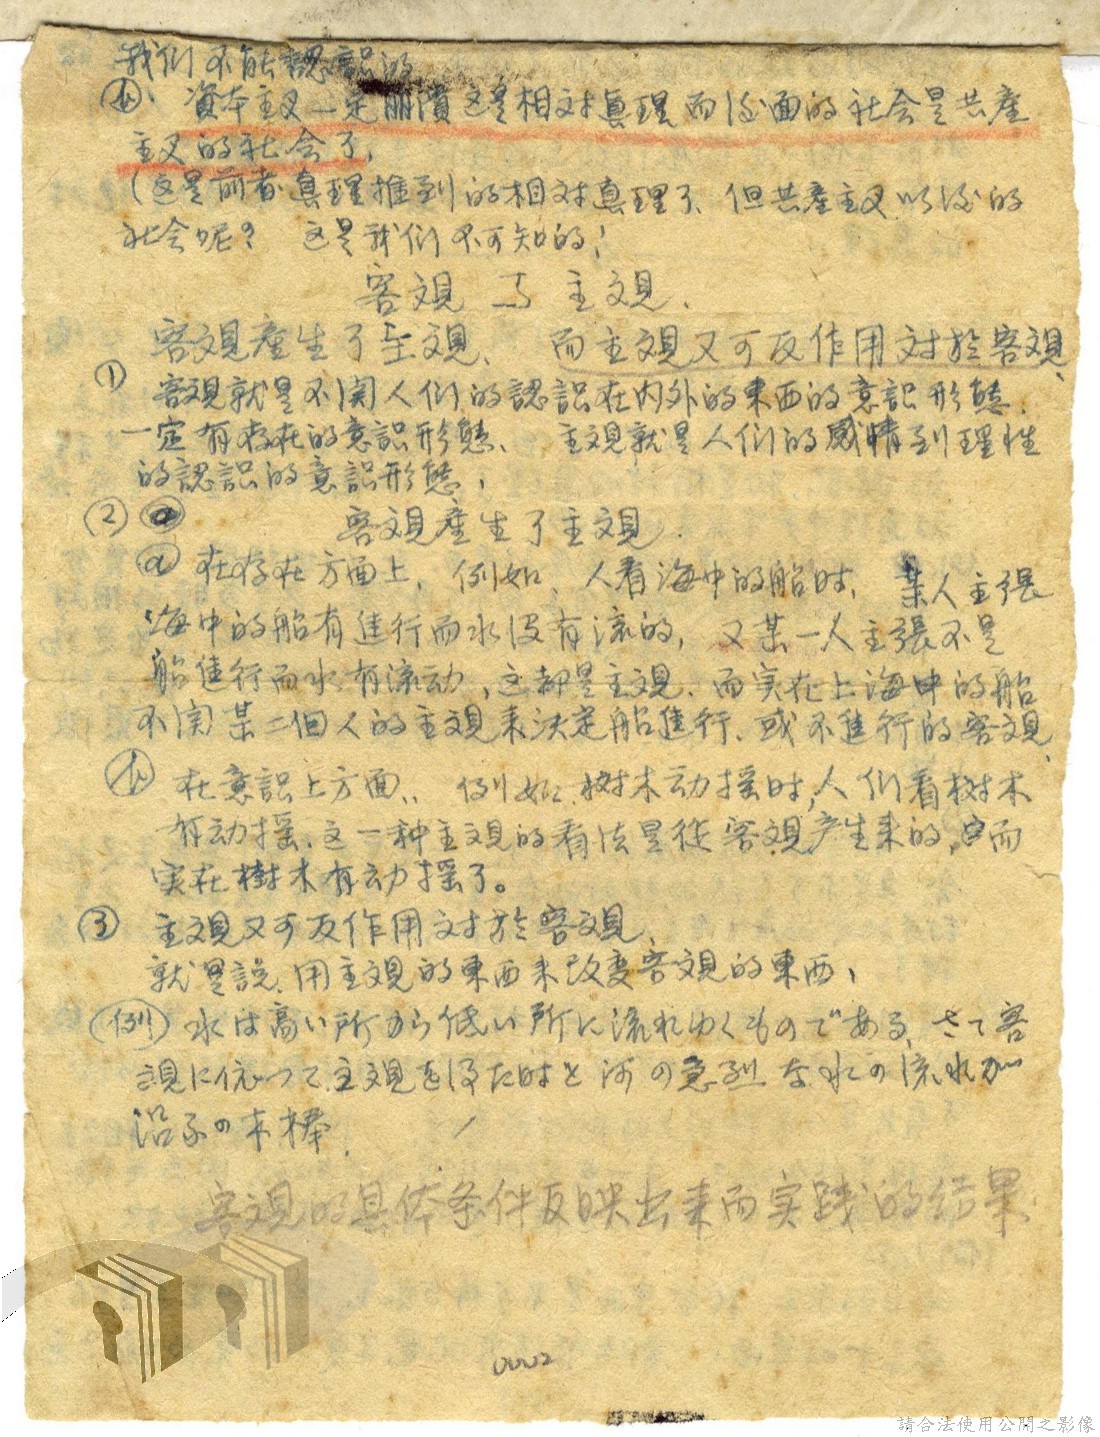 我们不能認識的
㋺、資本主义一定崩潰这是相対真理而後面的社会是共產
主义的社会了,
(这是前者真理推到的相対真理了、但共產主义以後的
社会呢? 这是我们不可知的!
客观与主观、
客观產生了主观、 而主观又可反作用対於客观、
① 客观就是不関人们的認識在内外的東西的意識形態、
一定有存在的意識形態、 主观就是人们的感情到理性
的認識的意識形態,
② 客观產生了主观
㋑ 在存在方面上, 例如、人看海中的船时, 某人主張
海中的船有進行而水没有流的, 又某一人主張不是
船進行而水有流动,这都是主观、而実在上海中的船
不関某二個人的主观来決定船進行、或不進行的客观、
㋺ 在意識上方面、 例如、樹木动摇时,人们看樹木
有动摇、这一种主观的看法是從客观产生来的,而
実在樹木有动摇了。
③ 主观又可反作用対於客观、
就是説、用主观的東西来改变客观的東西,
(例) 水は高い所から低い所に流れゆくものである、さて客
観に依つて主观を得た時と河の急烈な水の流れが
沿子の木棒
客观的具体条件反映出来而実践的结果
0002
請合法使用公開之影像